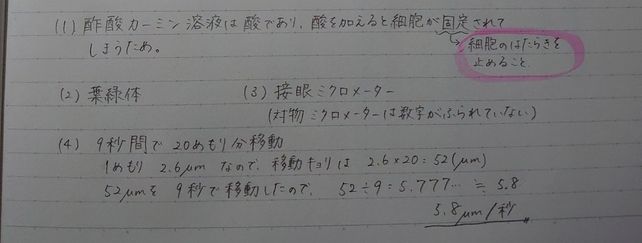 (1) 酢酸カーミン溶液は酸であり、酸を加えると細胞が固定されて
しまうため。
細胞のはたらきを
止めること。
(2) 葉緑体
(3) 接眼ミクロメーター
(対物ミクロメーターは数字がふられていない)
(4) 9秒間で20めもり分移動
1めもり 2.6μm なので、移動キョリは 2.6×20=52(μm)
52μmを 9秒で移動したので、 52÷9=5.777… ≒ 5.8
5.8μm/秒